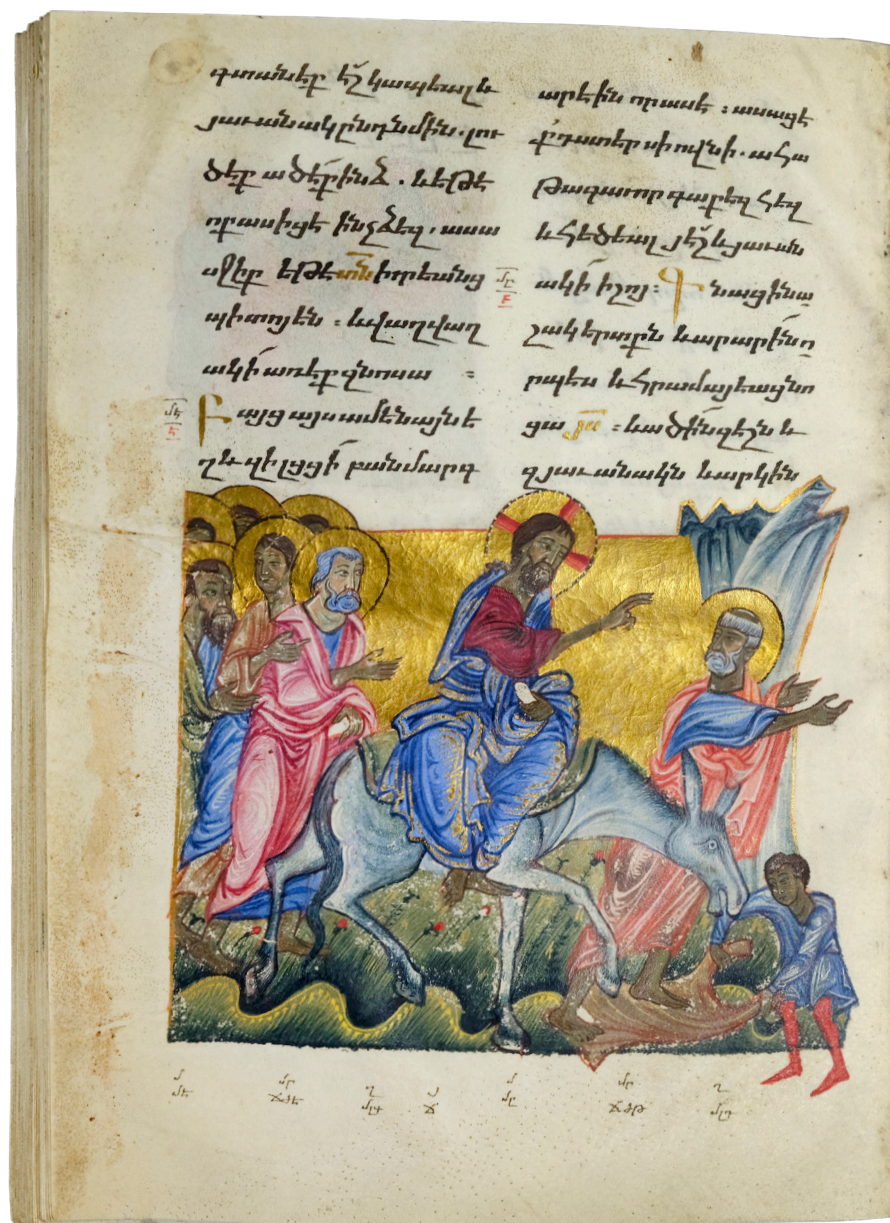 գտանէք էշ կապեալ և
յաւանակ ընդ նմին. լու
ծէք ածէք ինձ. և եթէ
ոք ասիցէ ինչ ձեզ, ասա
սջիք եթէ տն իւրեանց
պիտոյ են. և վաղվաղ
ակի զնոսա :
Բայց այս ամենայն ե
ղև զի լցցի բան մարգ
արէին որ ասէ. ասացէ
ք դստեր սիովնի. ահա
թագաւոր գա քեզ հեզ
և հեծեալ յէշ և յաւան
ակի իշոյ։ Գնացին ա
շակերտքն և արարին ո
րպես և հրամայեաց նո
ցա յս ։ և ածին զէշն և
զյաւանակն և արկին